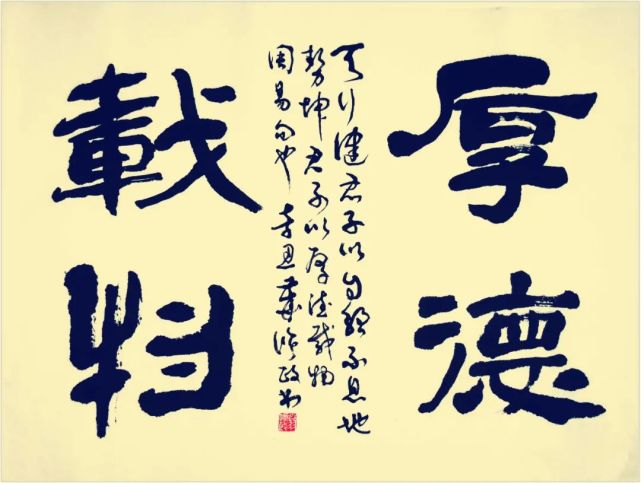 厚德
載物
天行健君子以自強不息地
勢坤君子以厚德載物
周易句也